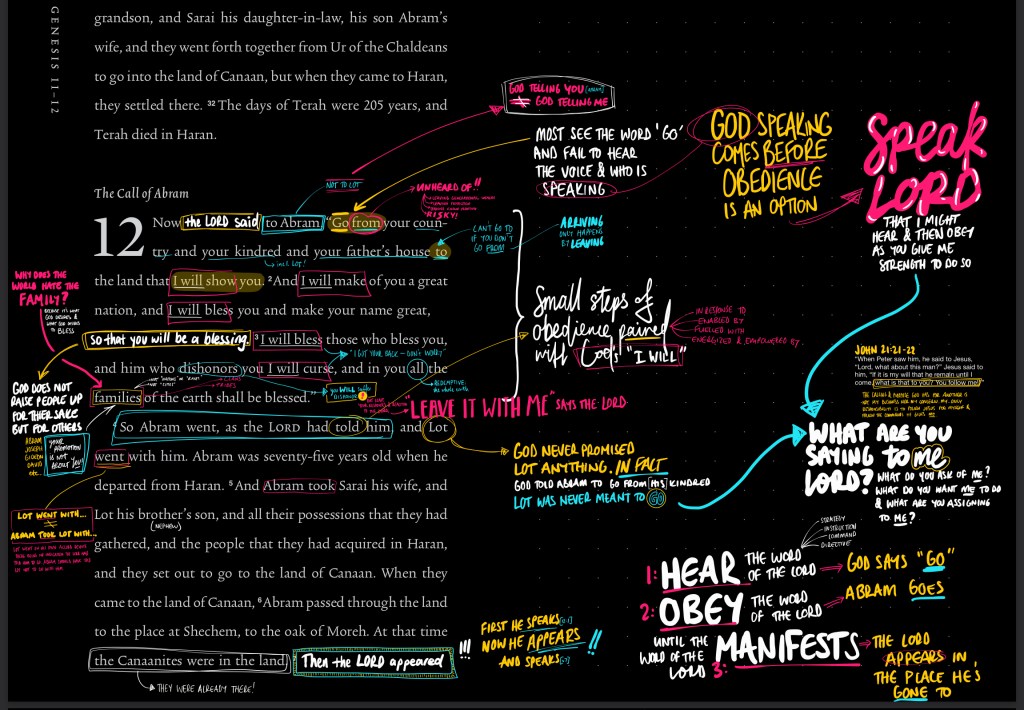 GENESIS 11-12
grandson, and Sarai his daughter-in-law, his son Abram's
wife, and they went forth together from Ur of the Chaldeans
to go into the land of Canaan, but when they came to Haran,
they settled there. 32 The days of Terah were 205 years, and
Terah died in Haran.
The Call of Abram
12 Now the LORD said to Abram "Go from your coun-
try and your kindred and your father's house to
the land that I will show you. 2 And I will make of you a great
nation, and I will bless you and make your name great,
so that you will be a blessing. 3 I will bless those who bless you,
and him who dishonors you I will curse, and in you all the
families of the earth shall be blessed."
4 So Abram went, as the LORD had told him, and Lot
went with him. Abram was seventy-five years old when he
departed from Haran. 5 And Abram took Sarai his wife, and
Lot his brother's son, and all their possessions that they had
(NEPHEW)
gathered, and the people that they had acquired in Haran,
and they set out to go to the land of Canaan. When they
came to the land of Canaan, 6 Abram passed through the land
to the place at Shechem, to the oak of Moreh. At that time
the Canaanites were in the land. Then the LORD appeared !!!
THEY WERE ALREADY THERE!
NOT TO LOT
incl. LOT!
UNHEARD OF!!
RISKY!
CAN'T GO TO
IF YOU DON'T
GO FROM
ARRIVING
ONLY HAPPENS
BY LEAVING
"I GOT YOUR BACK - DON'T WORRY"
REDEMPTIVE:
the whole earth
WHY DOES THE
WORLD HATE THE
FAMILY?
BECAUSE IT'S WHAT
GOD DESIRES &
WHAT GOD
TO BLESS
GOD DOES NOT
RAISE PEOPLE UP
FOR THEIR SAKE
BUT FOR OTHERS
ABRAM
JOSEPH
GIDEON
DAVID
etc..
YOUR
PROMOTION
IS NOT
ABOUT YOU!
LOT WENT WITH...
≠
ABRAM TOOK LOT WITH...
GOD TELLING YOU
≠ GOD TELLING ME
MOST SEE THE WORD 'GO'
AND FAIL TO HEAR
THE VOICE & WHO IS
SPEAKING
GOD SPEAKING
COMES BEFORE
OBEDIENCE
IS AN OPTION
Speak
LORD
THAT I MIGHT
HEAR & THEN OBEY
AS YOU GIVE ME
STRENGTH TO DO SO
Small steps of
obedience paired
with God's "I WILL"
IN RESPONSE TO
ENABLED BY
FUELED WITH
ENERGIZED & EMPOWERED BY.
"LEAVE IT WITH ME" SAYS THE LORD
GOD NEVER PROMISED
LOT ANYTHING. IN FACT
GOD TOLD ABRAM TO GO FROM HIS KINDRED
LOT WAS NEVER MEANT TO GO
JOHN 21:21-22
"When Peter saw him, he said to Jesus,
"Lord, what about this man?" Jesus said to
him, "If it is my will that he remain until I
come, what is that to you? You follow me!
WHAT ARE YOU
SAYING to me
LORD?
WHAT DO YOU ASK OF ME?
WHAT DO YOU WANT ME TO DO
& WHAT ARE YOU ASSIGNING
TO ME?
STRATEGY
INSTRUCTION
COMMAND
DIRECTIVE
1: HEAR THE WORD OF THE LORD → GOD SAYS "GO"
2: OBEY THE WORD OF THE LORD → ABRAM GOES
UNTIL THE
WORD OF THE
LORD 3: MANIFESTS → THE LORD
APPEARS IN
THE PLACE HE'S
GONE TO
FIRST HE SPEAKS
NOW HE APPEARS !!
AND SPEAKS